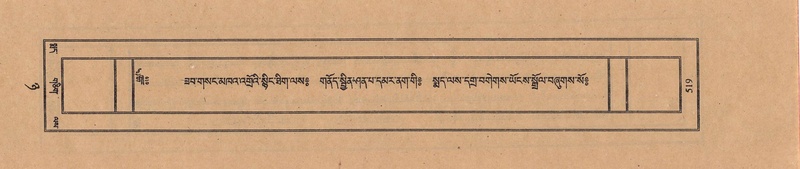 ༄༅༔ ཟབ་གསང་མཁའ་འགྲོའི་སྙིང་ཐིག་ལས༔ གནོད་སྦྱིན་ཤན་པ་དམར་ནག་གི༔ སྨད་ལས་དགྲ་བགེགས་ཡོངས་སྒྲོལ་བཞུགས་སོ༔
གཅིག
519